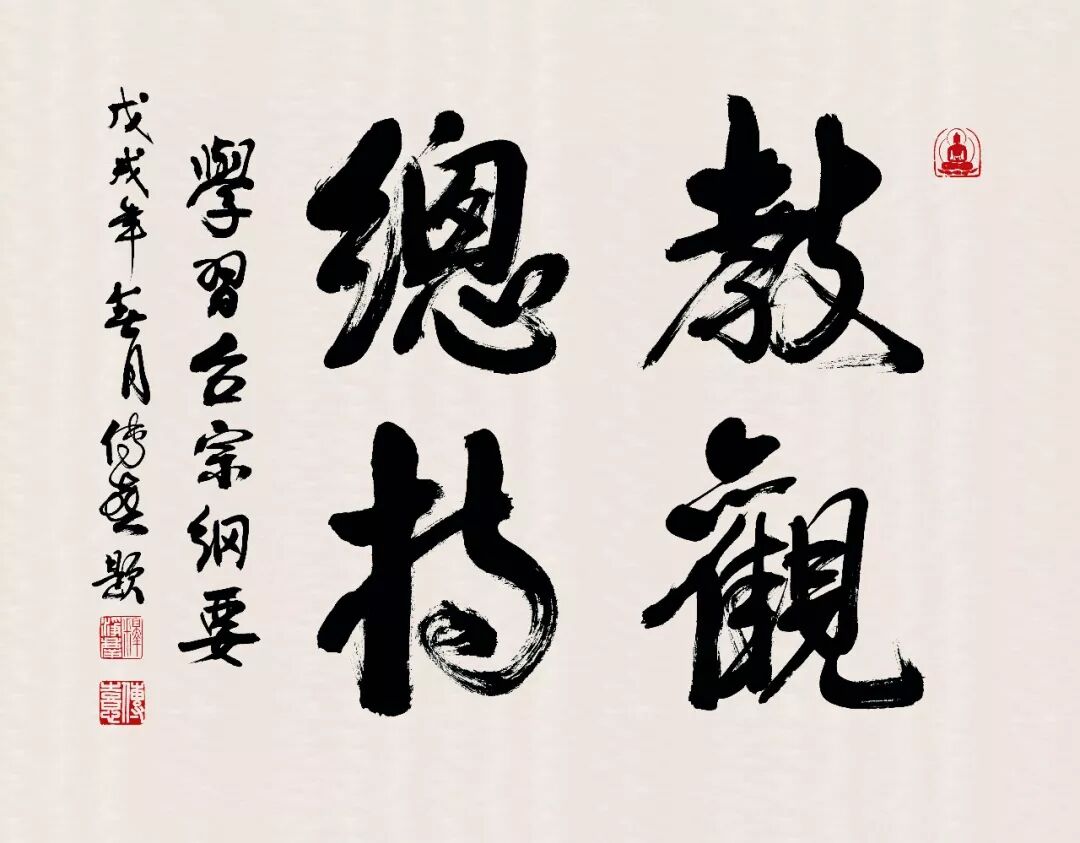 教觀
總持
學習台宗綱要
戊戌年春月傳喜題